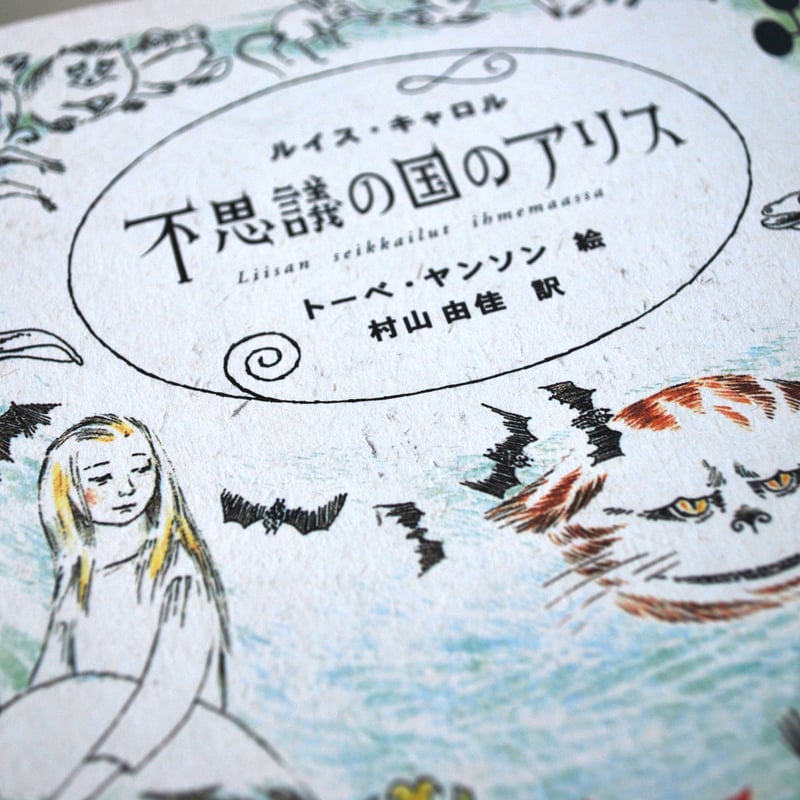 ルイス・キャロル
不思議の国のアリス
Liisan seikkailut ihmemaassa
トーベ・ヤンソン 絵
村山由佳 訳